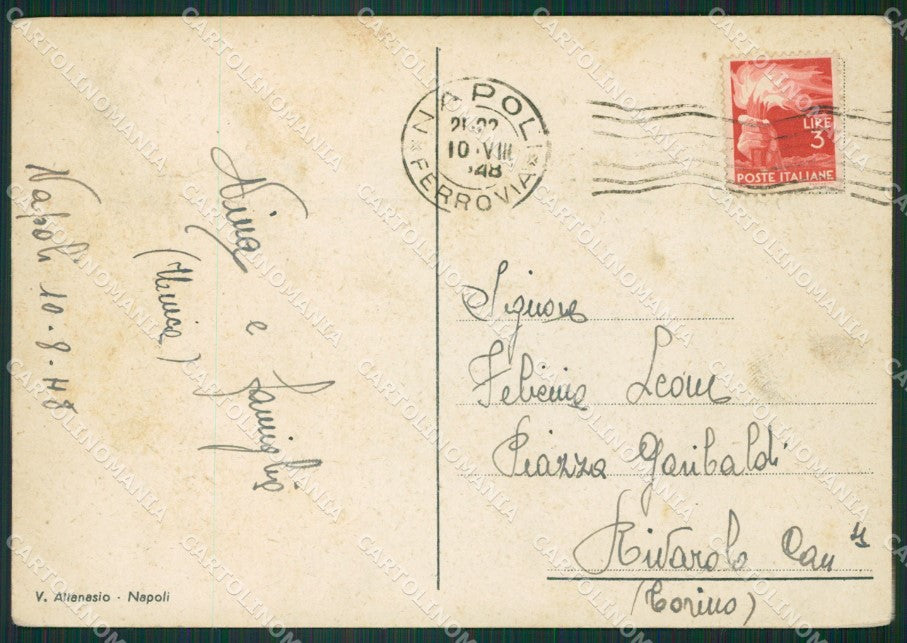 Napoli 10-8-48
Nina
(Unica)
e
famiglia
V. Attanasio - Napoli
NAPOLI
21-22
10·VIII
48
FERROVIA
LIRE
3
POSTE ITALIANE
Signora
Felicina Leone
Piazza Garibaldi
Rivarolo Can se
(Torino)
CARTOLINOMANIA